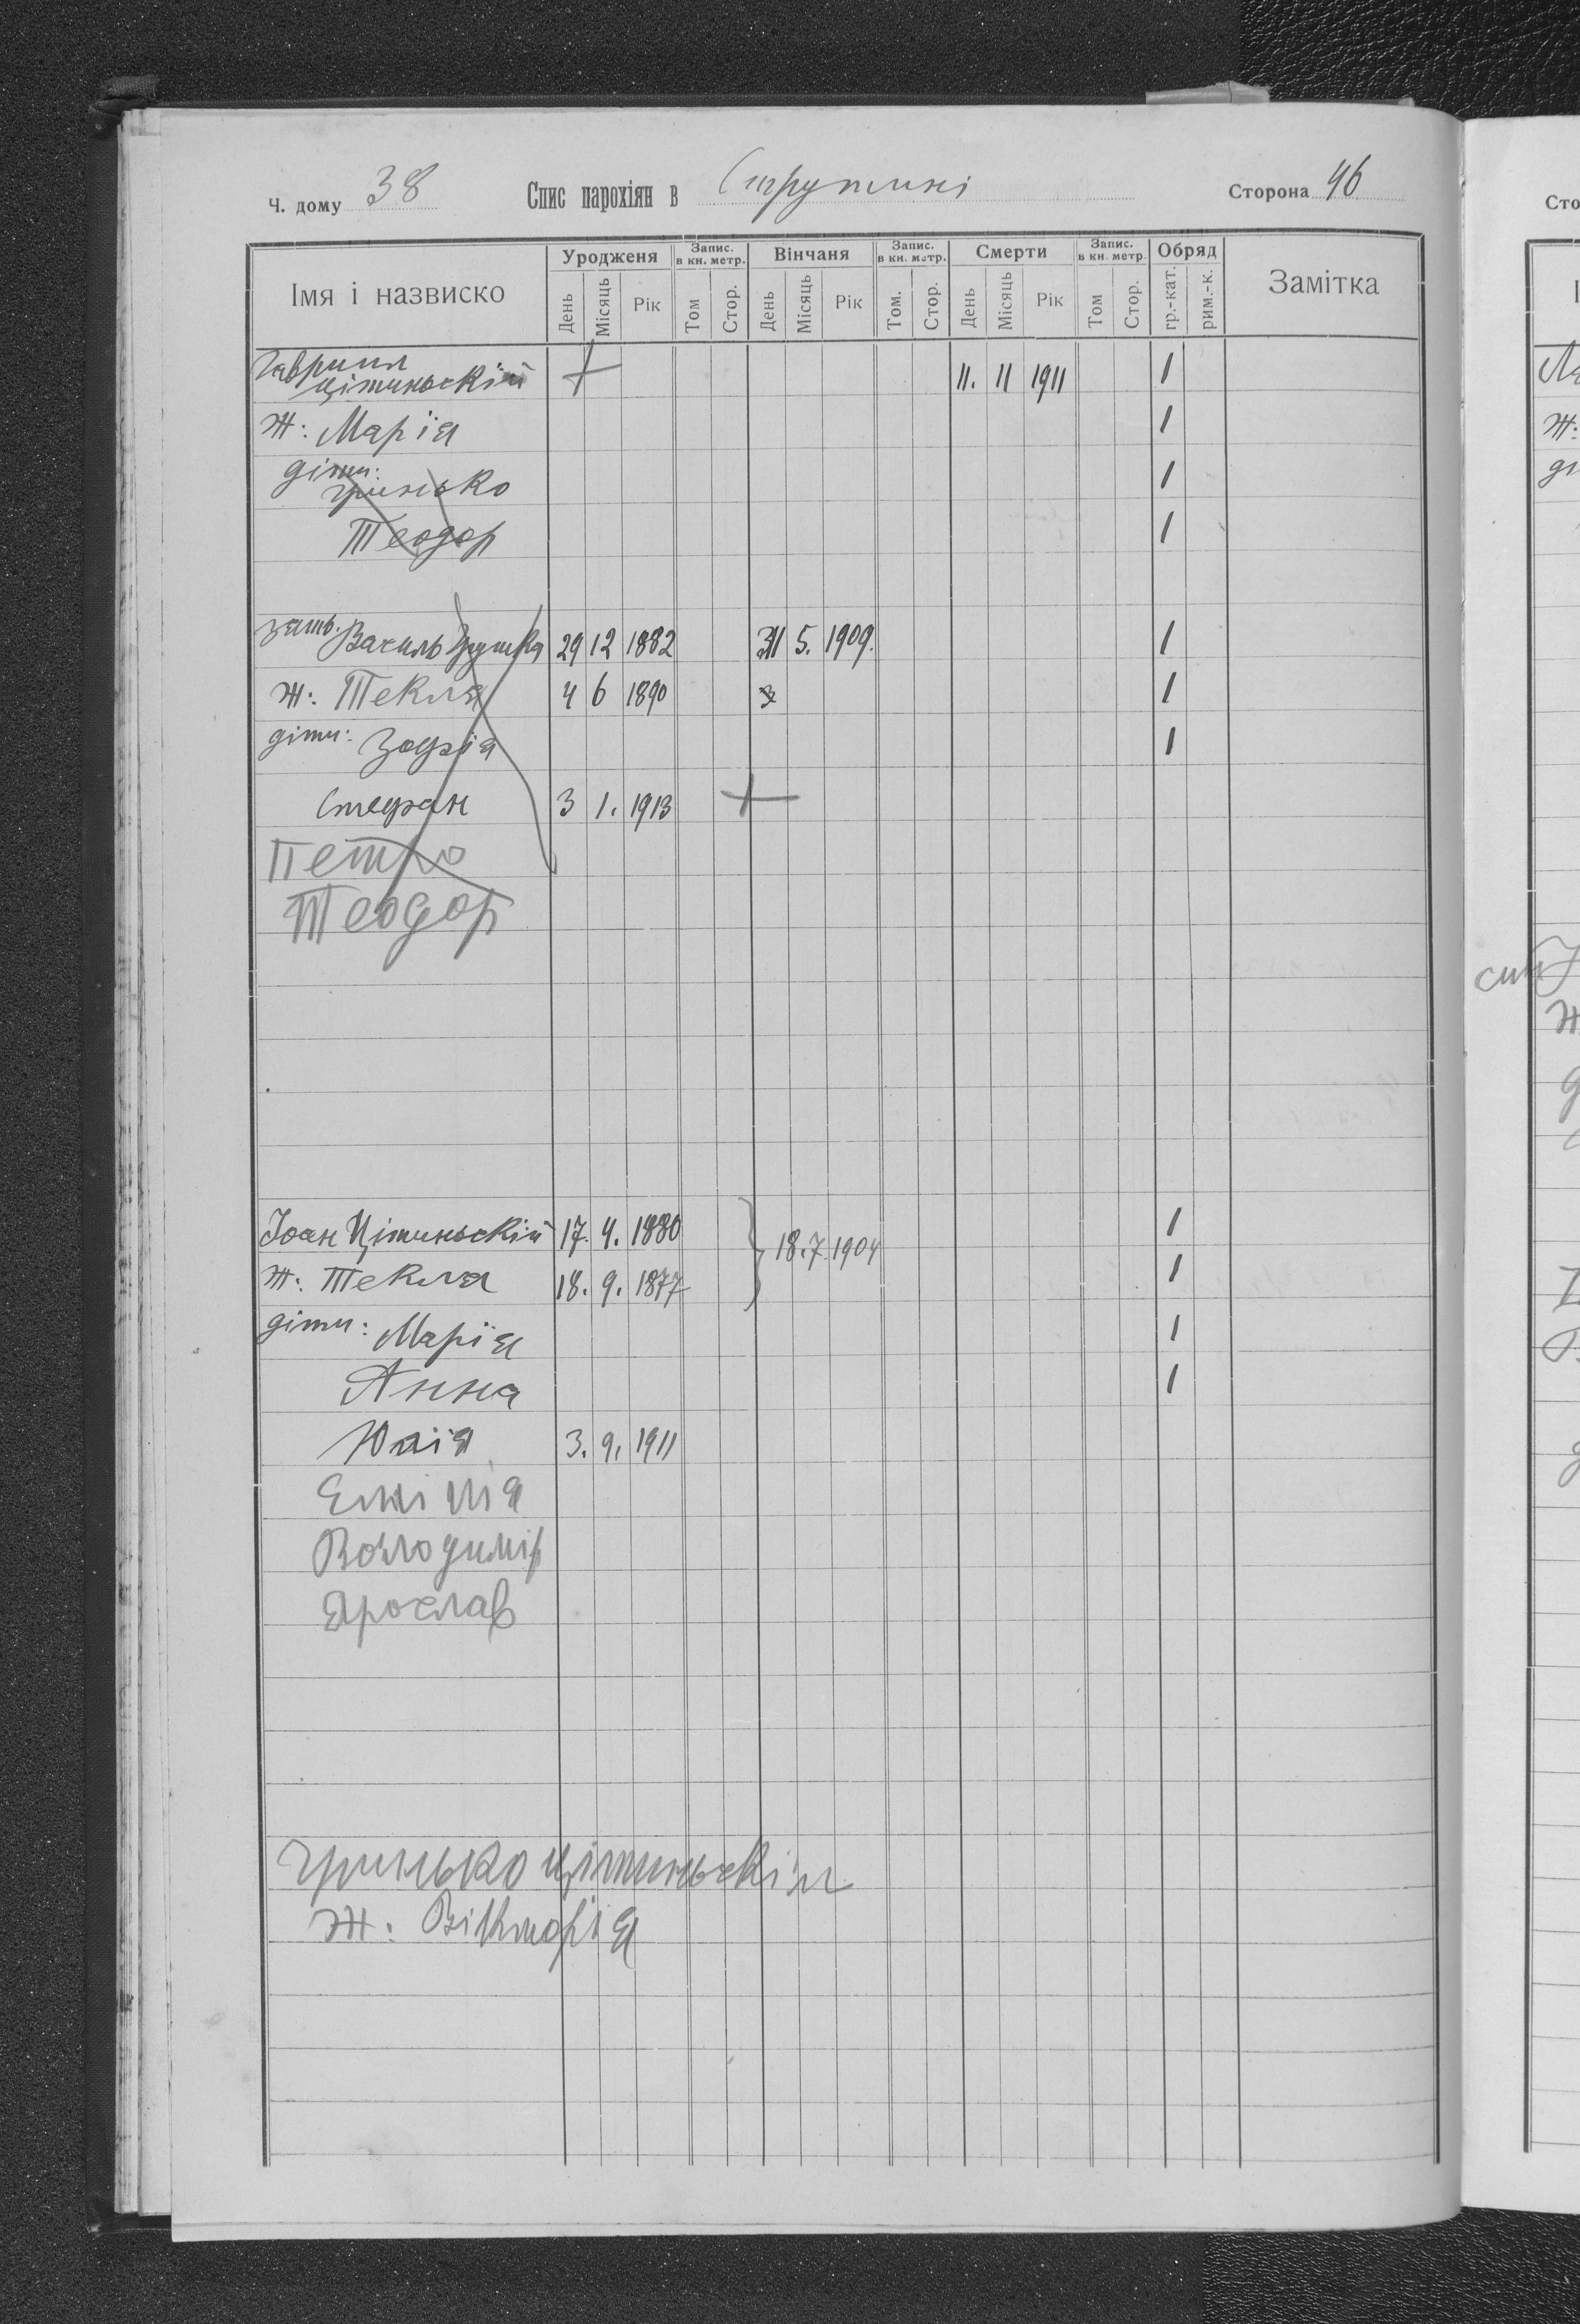 Ч. дому 38 Спис парохіян в Струтині Сторона 46
Імя і назвиско Уродженя Запис. в кн. метр. Вінчаня Запис. в кн. метр. Смерти Запис. в кн. метр. Обряд Замітка
День Місяць Рік Том Стор. День Місяць Рік Том. Стор. День Місяць Рік Том Стор. гр.-кат. рим.-к.
Гавриил
Цітиньскій + 11. 11 1911 1
Ж: Марія 1
діти:
Гринько 1
Теодор 1
зять. Василь 29 12 1882 31 5. 1909. 1
ж: Текля 4 6 1890 1
діти: Зофія 1
Стефан 3 1. 1913 +
Петро
Теодор
Іоан Цітиньскій 17. 4. 1880 18.7.1904 1
ж: Текля 18. 9. 1877 1
діти: Марія 1
Анна 1
Юлія 3. 9. 1911
Емілія
Володимір
Ярослав
Гринько Цітиньскій
ж: Вікторія